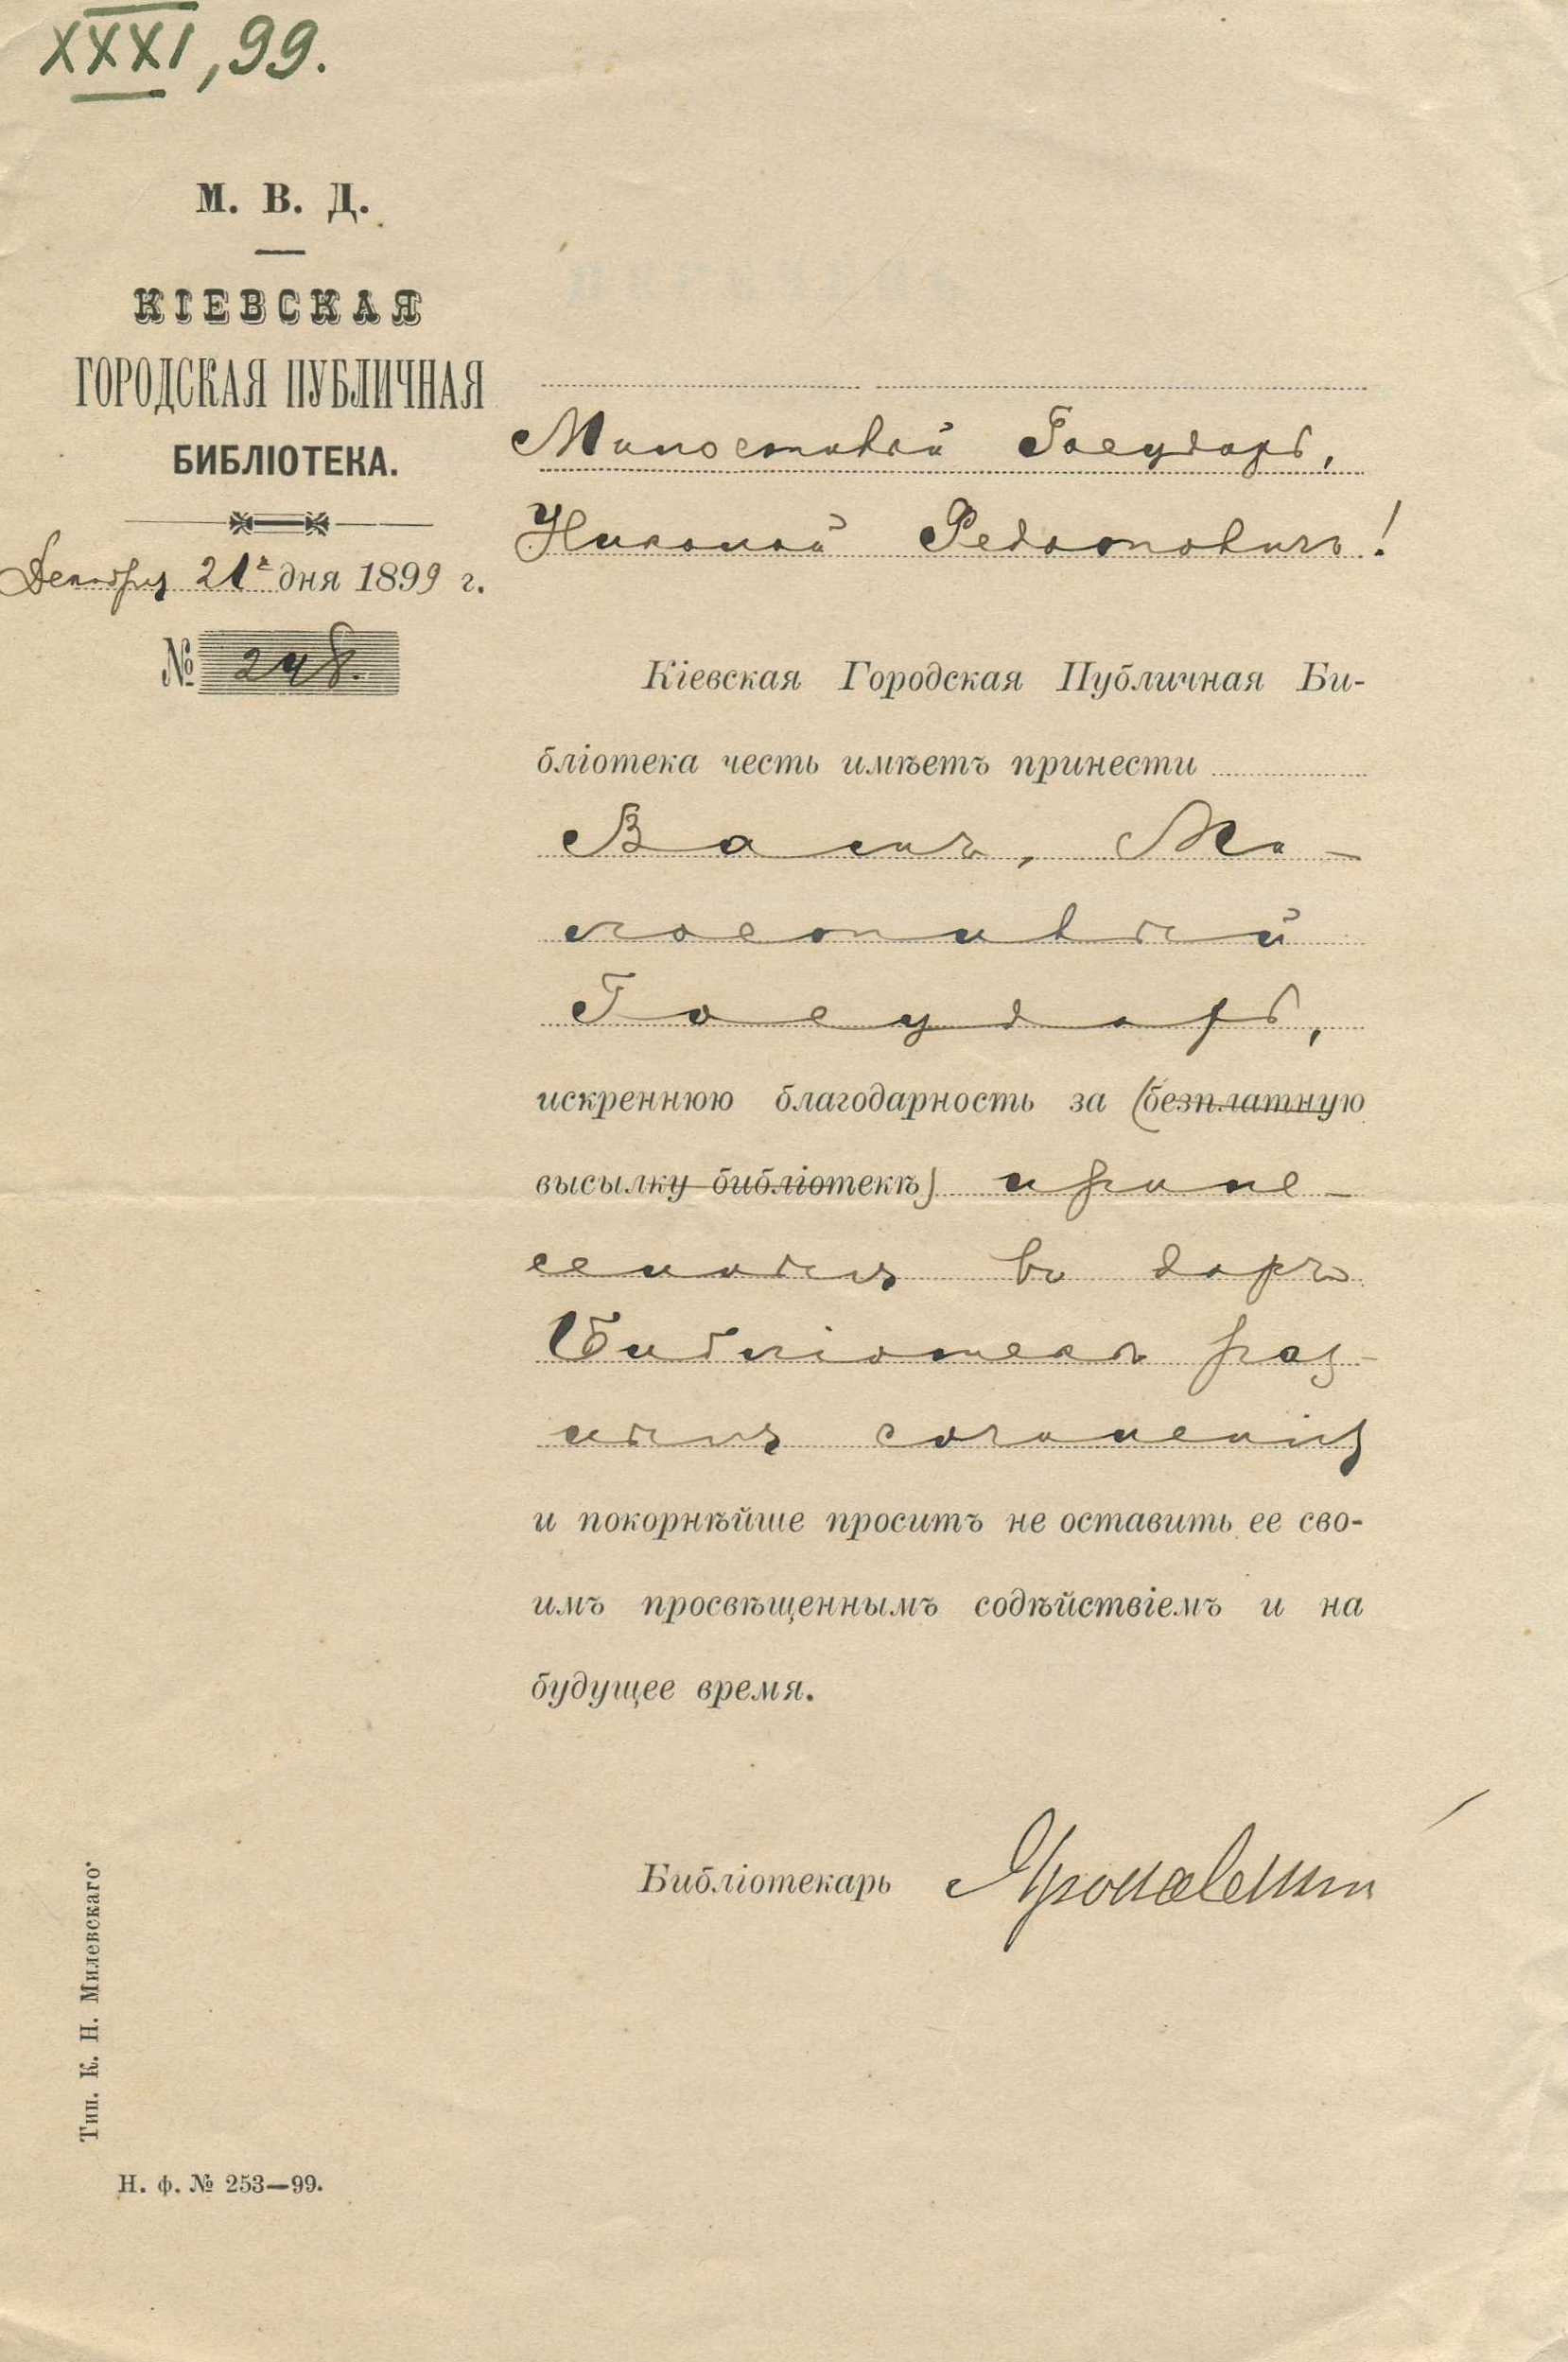 XXXI, 99.
М. В. Д.
КІЕВСКАЯ
ГОРОДСКАЯ ПУБЛИЧНАЯ
БИБЛІОТЕКА.
Декабря 21 дня 1899 г.
№ 248.
Милостивый Государь,
Николай Федотовичъ!
Кіевская Городская Публичная Би-
бліотека честь имѣетъ принести
Вамъ, Ми-
лостивый
Государь,
искреннюю благодарность за (безплатную
высылку библіотекѣ) прине-
сенныхъ въ даръ
Библіотекѣ раз-
ныхъ сочиненія
и покорнѣйше проситъ не оставить ее сво-
имъ просвѣщеннымъ содѣйствіемъ и на
будущее время.
Библіотекарь
Тип. К. Н. Милевскаго
Н. ф. № 253—99.